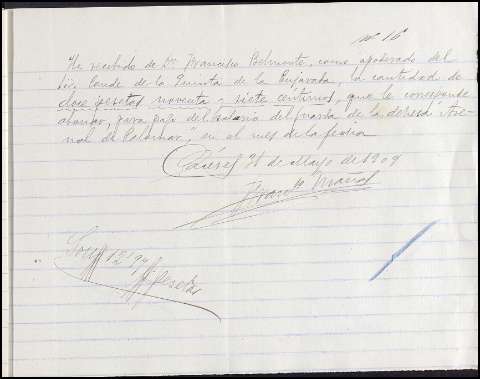 nº 16
He recibido de Dn. Francisco Belmonte, como apoderado del
Sr. Conde de la Quinta de la Enjarada, la cantidad de
doce pesetas noventa y siete céntimos, que le corresponde
abonar, para pago del salario del guarda de la dehesa "Are-
nal de Palomar," en el mes de la fecha
Cáceres 31 de Mayo de 1909
Son 12'97 pesetas